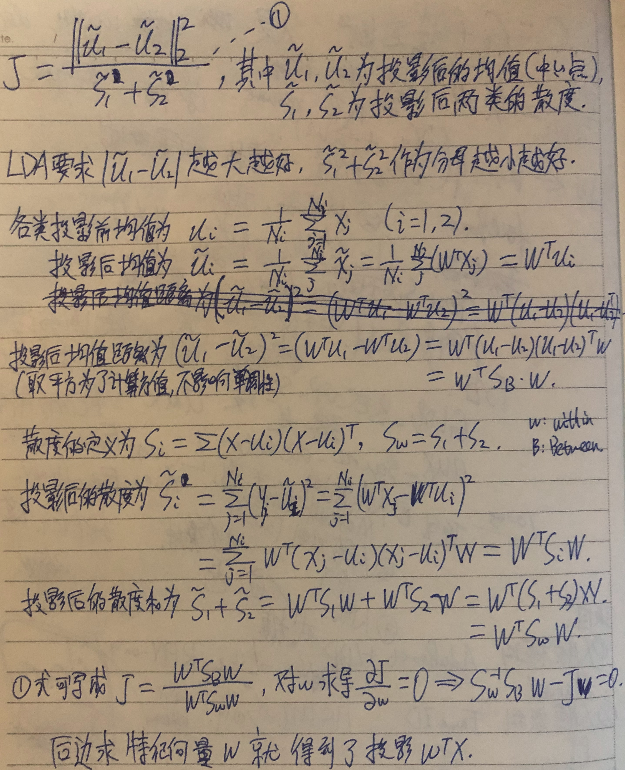 J = ||ũ₁-ũ₂||₂² / (s̃₁+s̃₂) ……①
, 其中 ũ₁, ũ₂ 为投影后的均值(中心点),
s̃₁, s̃₂ 为投影后两类的散度.
LDA要求 |ũ₁-ũ₂| 越大越好, s̃₁²+s̃₂² 作为分母越小越好.
各类投影前均值为 uᵢ = 1/Nᵢ Σⱼ₌₁^Nᵢ xⱼ (i=1,2).
投影后均值为 ũᵢ = 1/Nᵢ Σⱼ^Nᵢ x̃ⱼ = 1/Nᵢ Σⱼ^Nᵢ (WᵀXⱼ) = Wᵀuᵢ
投影后均值距离为 (ũ₁-ũ₂)² = (Wᵀu₁-Wᵀu₂)² = Wᵀ(u₁-u₂)(u₁-u₂)ᵀ
投影后均值距离为 (ũ₁-ũ₂)² = (Wᵀu₁-Wᵀu₂) = Wᵀ(u₁-u₂)(u₁-u₂)ᵀW
(取平方为了计算方值, 不影响单调性) = WᵀS_B·W.
散度的定义为 Sᵢ = Σ(x-uᵢ)(x-uᵢ)ᵀ, S_w = S₁+S₂.
w: within
B: Between
投影后的散度为 s̃ᵢ = Σⱼ₌₁^Nᵢ (yⱼ-ũᵢ)² = Σⱼ₌₁^Nᵢ (WᵀXⱼ-Wᵀuᵢ)²
= Σⱼ₌₁^Nᵢ Wᵀ(xⱼ-uᵢ)(xⱼ-uᵢ)ᵀW = WᵀSᵢW.
投影后的散度和为 s̃₁+s̃₂ = WᵀS₁W+WᵀS₂W = Wᵀ(S₁+S₂)W.
= WᵀS_wW.
①式可写成 J = WᵀS_BW / WᵀS_wW, 对w求导 ∂J/∂w = 0 ⇒ S_w⁻¹S_B W-JW=0.
后边求特征向量W就得到了投影WᵀX.